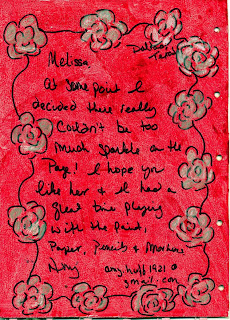 Melissa
Dallas,
Texas
At some point I
decided there really
couldn't be too
much sparkle on the
page! I hope you
like her & I had a
great time playing
with the paint,
paper, pencils &
amyhuff1921@
gmail.com